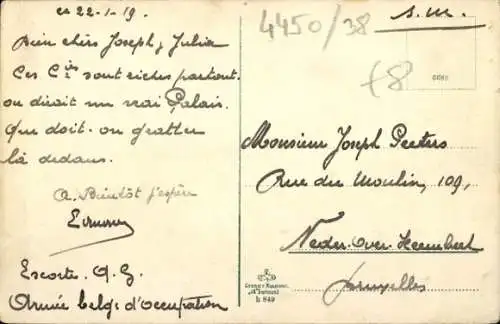 ce 22-1-19.
Bien chers Joseph, Julia
Ces Cies sont riches partout.
on dirait un vrai Palais.
Que doit-on gratter
là dedans.
A Bientôt j'espère
Escorte. Q. G.
Armée belge d'occupation
4450/38
S. M.
+8
Monsieur Joseph Peeters
Rue du Moulin, 109,
Neder-over-Heembert
Bruxelles
h 849